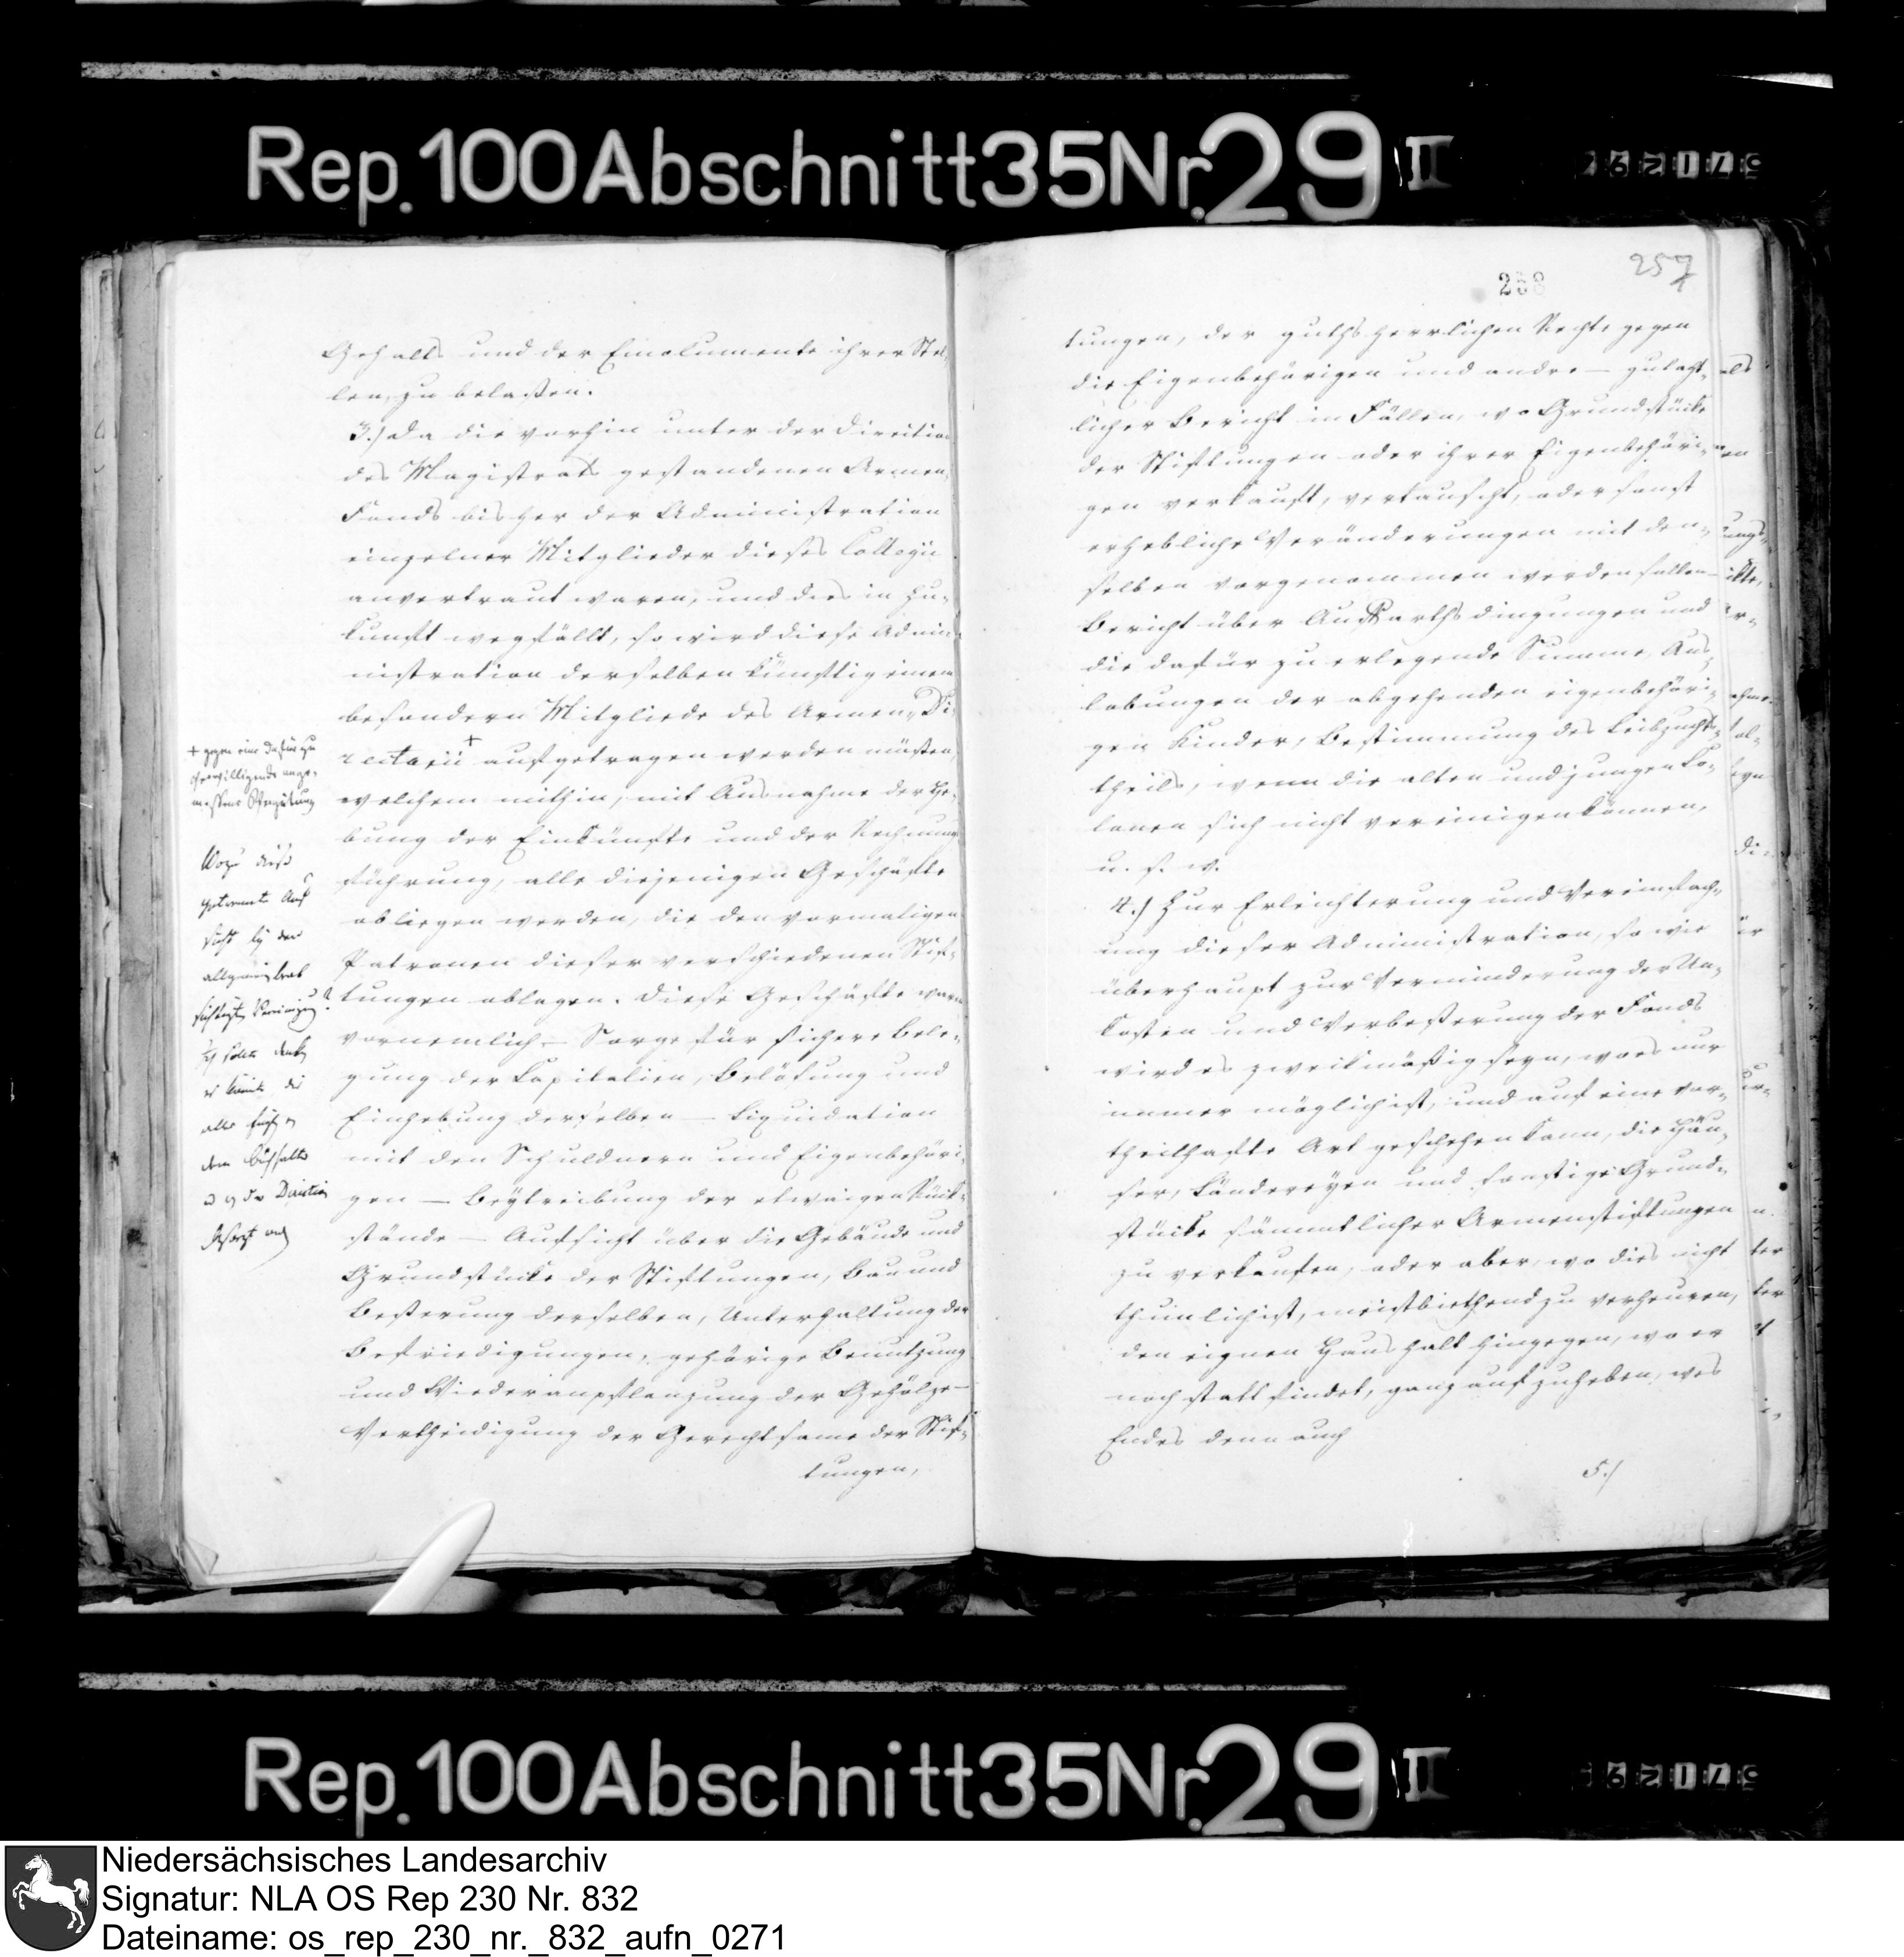 Rep. 100 Abschnitt 35 Nr. 29 II
Gehalts und der Emolumente ihrer Stel-
len, zu belaßen.
3.) Da die vorhin unter der Direction
des Magistrats gestandenen Armen-
Fonds bisher der Administration
einzelner Mitglieder dieses Collegii
anvertraut waren, und dies in Zu-
kunft wegfällt, so wird diese Admi-
nistration derselben künftig einem
besondern Mitgliede des Armen-Di-
rectorii + aufgetragen werden müßen,
welchem mithin, mit Ausnahme der He-
bung der Einkünfte und der Rechnungs
führung, alle diejenigen Geschäfte
obliegen werden, die den vormaligen
Patronen dieser verschiedenen Stif-
tungen oblagen. Diese Geschäfte waren
vornemlich — Sorge für sichere Bele-
gung der Kapitalien, Belösung und
Einhebung derselben — Liquidation
mit den Schuldnern und Eigenbehöri-
gen — Beytreibung der etwaigen Rück-
stände — Aufsicht über die Gebäude und
Grundstücke der Stiftungen, Bau und
Beßerung derselben, Unterhaltung der
Befriedigungen, gehörige Benutzung
und Wiederanpflanzung der Gehölze —
Vertheidigung der Gerechtsame der Stif-
tungen,
+ gegen eine dafür zu
bewilligende ange-
meßene Vergütung
Wozu diese
getrennte Auf
sicht bey der
Vereinigung?
Ich sollte denken
es könnte die
alle
dem Buchhalter
Direction
besorgt werden
268
257
tungen, der guthsherrlichen Rechte gegen
die Eigenbehörigen und andre — gutacht-
licher Bericht in Fällen, wo Grundstücke
der Stiftungen oder ihrer Eigenbehöri-
gen verkauft, vertauscht, oder sonst
erhebliche Veränderungen mit den-
selben vorgenommen werden sollen —
Bericht über Auffarthsdingungen und
die dafür zu erlegende Summe, Aus-
lobungen der abgehenden eigenbehöri-
gen Kinder, Bestimmung des Leibzuchts-
theils, wenn die alten und jungen Co-
lonen sich nicht vereinigen können,
u. s. w.
4.) Zur Erleichterung und Vereinfach-
ung dieser Administration, so wie
überhaupt zur Verminderung der Un-
kosten und Verbeßerung der Fonds
wird es zweckmäßig seyn, wo es nur
immer möglich ist, und auf eine vor-
theilhafte Art geschehen kann, die Häu-
ser, Ländereyen und sonstige Grund-
stücke sämmtlicher Armenstiftungen
zu verkaufen, oder aber, wo dies nicht
thunlich ist, meistbiethend zu verheuren,
den eignen Haushalt hingegen, wo er
noch statt findet, ganz aufzuheben, wes
Endes denn auch
5.)
Rep. 100 Abschnitt 35 Nr. 29 II
Niedersächsisches Landesarchiv
Signatur: NLA OS Rep 230 Nr. 832
Dateiname: os_rep_230_nr._832_aufn_0271